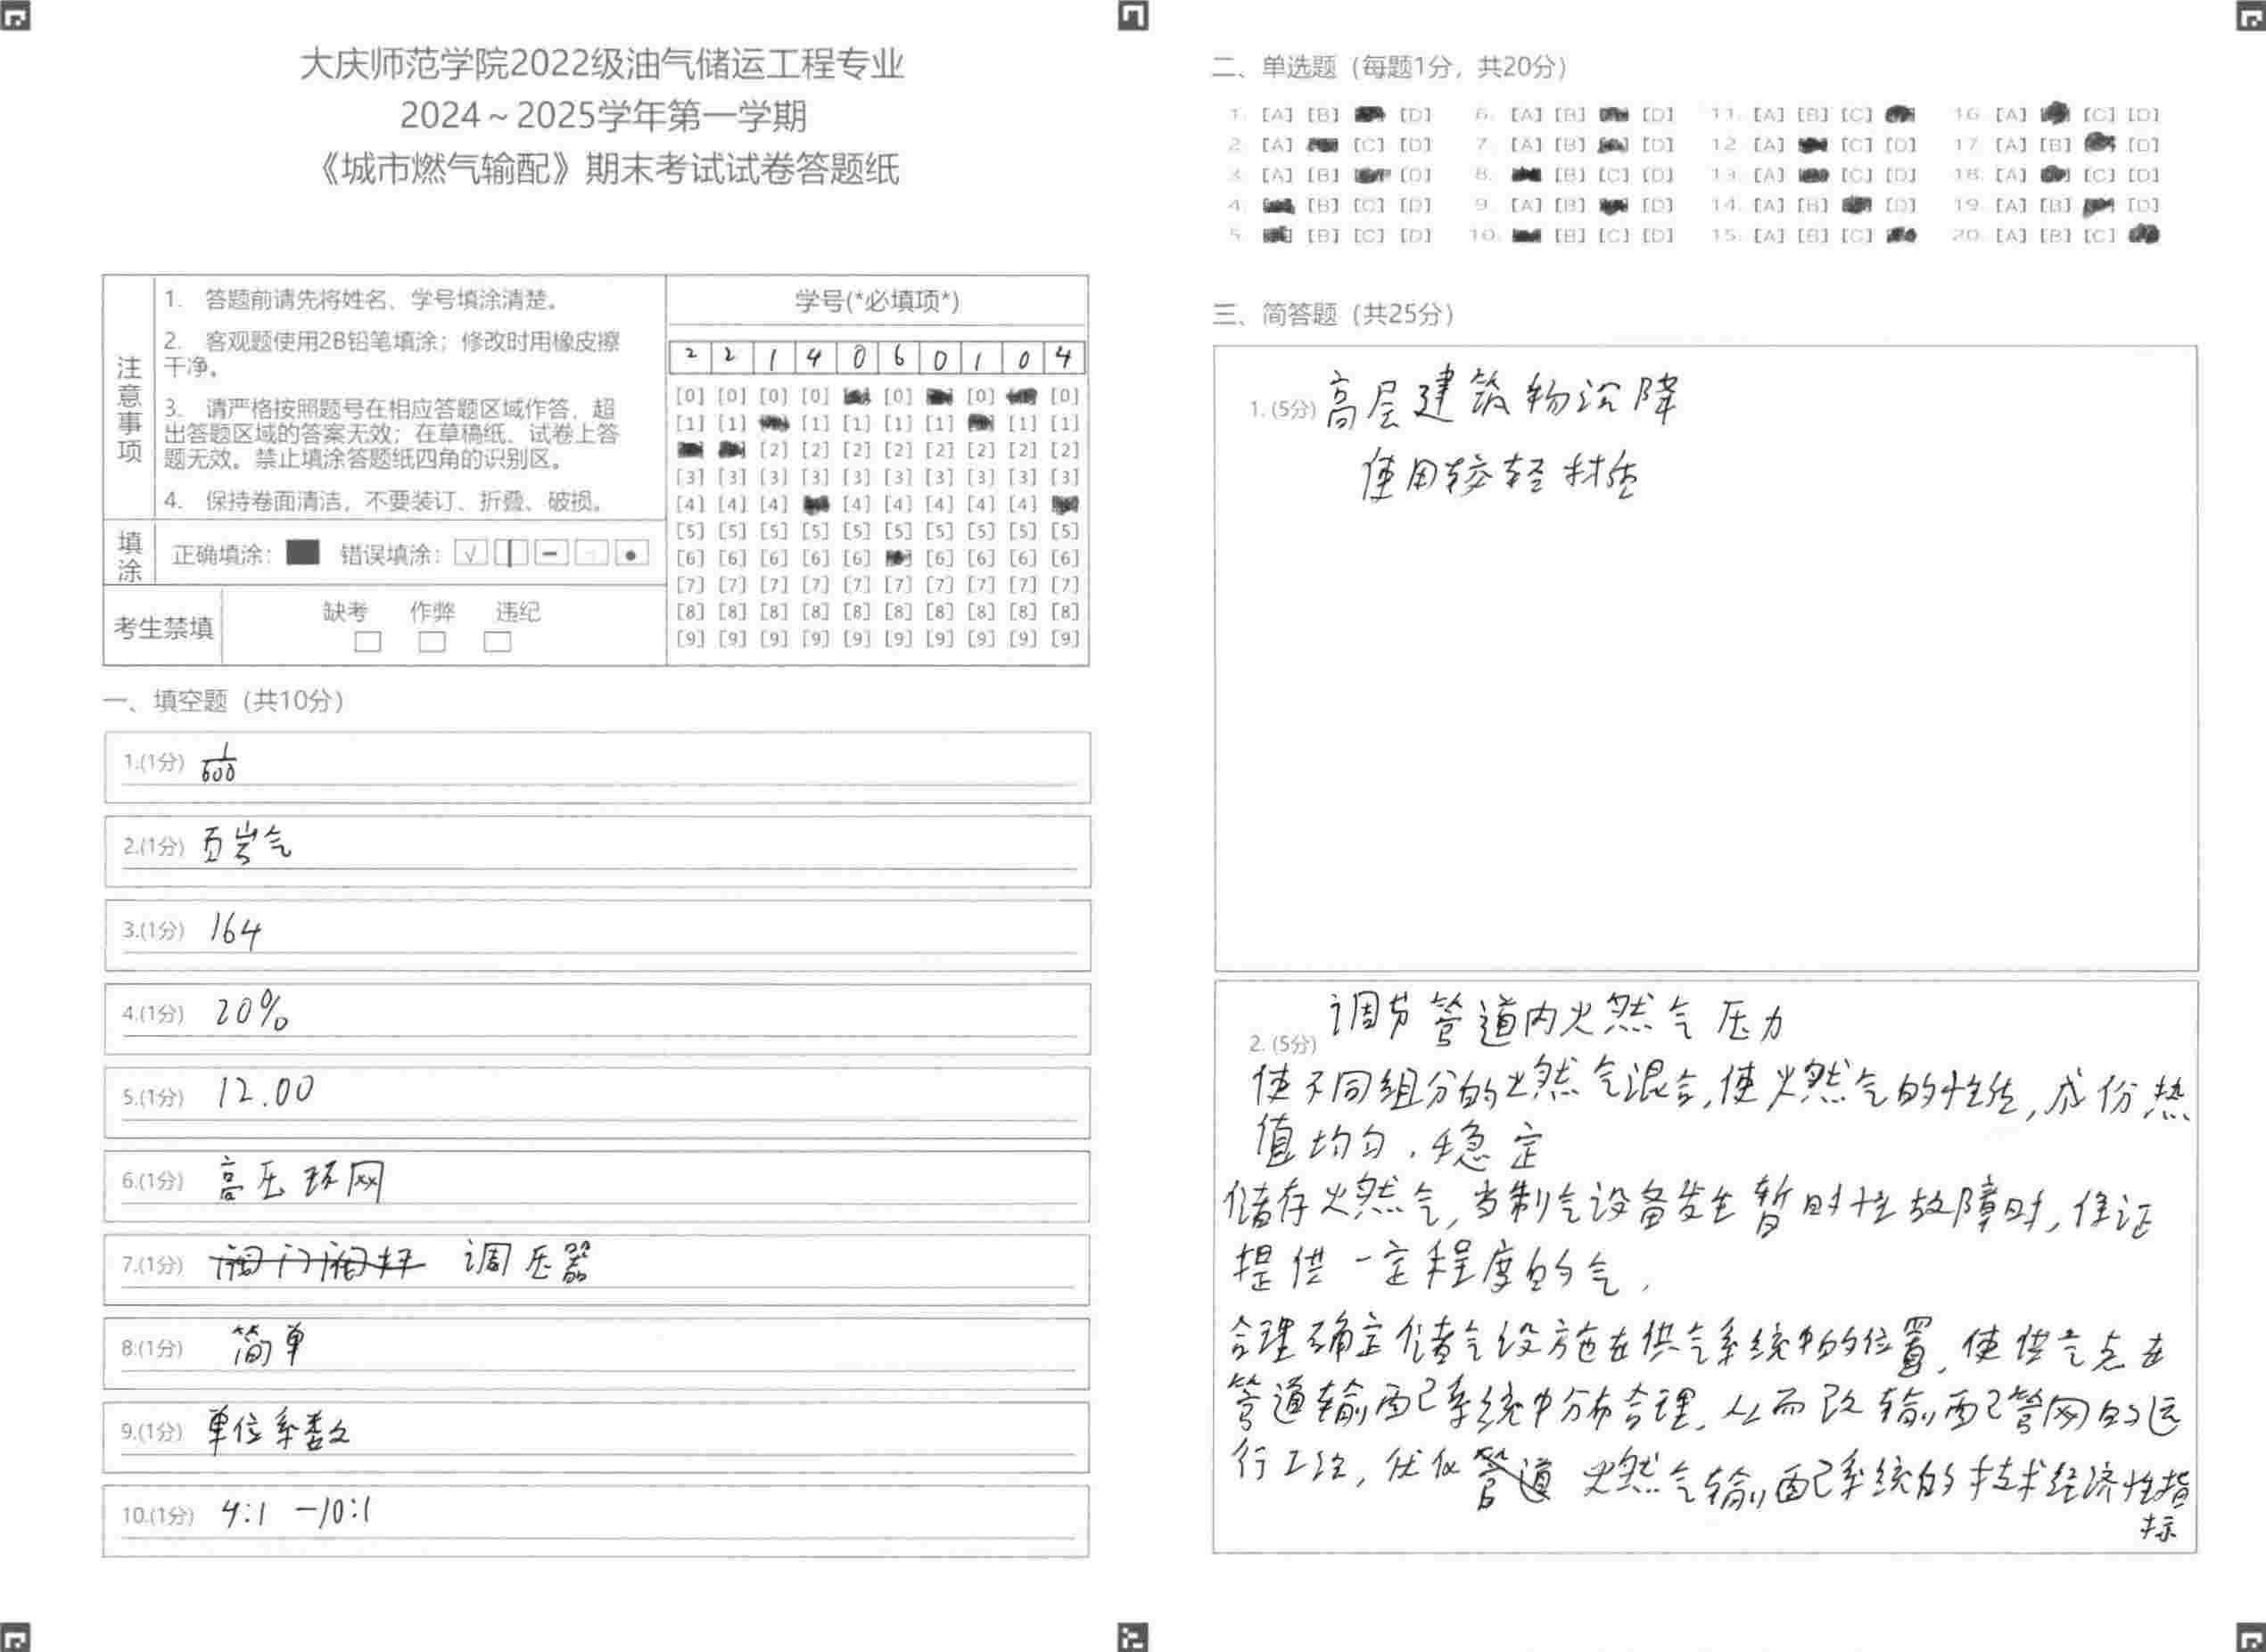 大庆师范学院2022级油气储运工程专业
2024～2025学年第一学期
《城市燃气输配》期末考试试卷答题纸
注意事项
1. 答题前请先将姓名、学号填涂清楚。
2. 客观题使用2B铅笔填涂；修改时用橡皮擦
干净。
3. 请严格按照题号在相应答题区域作答，超
出答题区域的答案无效；在草稿纸、试卷上答
题无效。禁止填涂答题纸四角的识别区。
4. 保持卷面清洁，不要装订、折叠、破损。
填涂
正确填涂： 错误填涂：
考生禁填
缺考 作弊 违纪
学号(*必填项*)
2 2 1 4 0 6 0 1 0 4
[0] [0] [0] [0] [0] [0] [0]
[1] [1] [1] [1] [1] [1] [1] [1]
[2] [2] [2] [2] [2] [2] [2] [2]
[3] [3] [3] [3] [3] [3] [3] [3] [3] [3]
[4] [4] [4] [4] [4] [4] [4] [4]
[5] [5] [5] [5] [5] [5] [5] [5] [5] [5]
[6] [6] [6] [6] [6] [6] [6] [6] [6]
[7] [7] [7] [7] [7] [7] [7] [7] [7] [7]
[8] [8] [8] [8] [8] [8] [8] [8] [8] [8]
[9] [9] [9] [9] [9] [9] [9] [9] [9] [9]
一、填空题（共10分）
1.(1分) 1/600
2.(1分) 页岩气
3.(1分) 164
4.(1分) 20%
5.(1分) 12.00
6.(1分) 高压环网
7.(1分) 调压器
8.(1分) 简单
9.(1分) 单位系数
10.(1分) 4:1 —10:1
二、单选题（每题1分，共20分）
1. [A] [B] [D] 6. [A] [B] [D] 11. [A] [B] [C] 16. [A] [C] [D]
2. [A] [C] [D] 7. [A] [B] [D] 12. [A] [C] [D] 17. [A] [B] [D]
3. [A] [B] [D] 8. [B] [C] [D] 13. [A] [C] [D] 18. [A] [C] [D]
4. [B] [C] [D] 9. [A] [B] [D] 14. [A] [B] [D] 19. [A] [B] [D]
5. [B] [C] [D] 10. [B] [C] [D] 15. [A] [B] [C] 20. [A] [B] [C]
三、简答题（共25分）
1. (5分) 高层建筑物沉降
使用较轻材质
2. (5分) 调节管道内燃气压力
使不同组分的燃气混合,使燃气的性质,成份热
值均匀.稳定
储存燃气,当制气设备发生暂时性故障时,保证
提供一定程度的气.
合理确定储气设施在供气系统中的位置,使供气点在
管道输配系统中分布合理,从而改输配管网的运
行工况,优化 燃气输配系统的技术经济性指
标